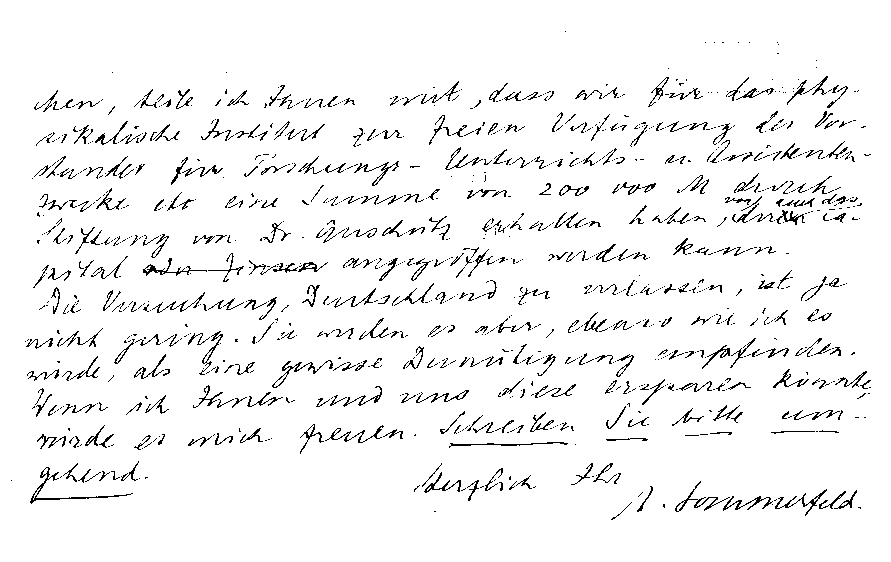 chen, teile ich Ihnen mit, dass wir für das phy-
sikalische Institut zur freien Verfügung des Vor-
standes für Forschungs- Unterrichts- u. Assistenten-
zwecke etc eine Summe von 200 000 M durch
Stiftung von Dr. Anschütz erhalten haben, von das Ca-
pital oder Zinsen angegriffen werden kann.
Die Versuchung, Deutschland zu verlassen, ist ja
nicht gering. Sie werden es aber, ebenso wie ich es
würde, als eine gewisse Demütigung empfinden.
Wenn ich Ihnen und uns diese ersparen könnte,
würde es mich freuen. Schreiben Sie bitte um-
gehend.
Herzlich Ihr
A. Sommerfeld.